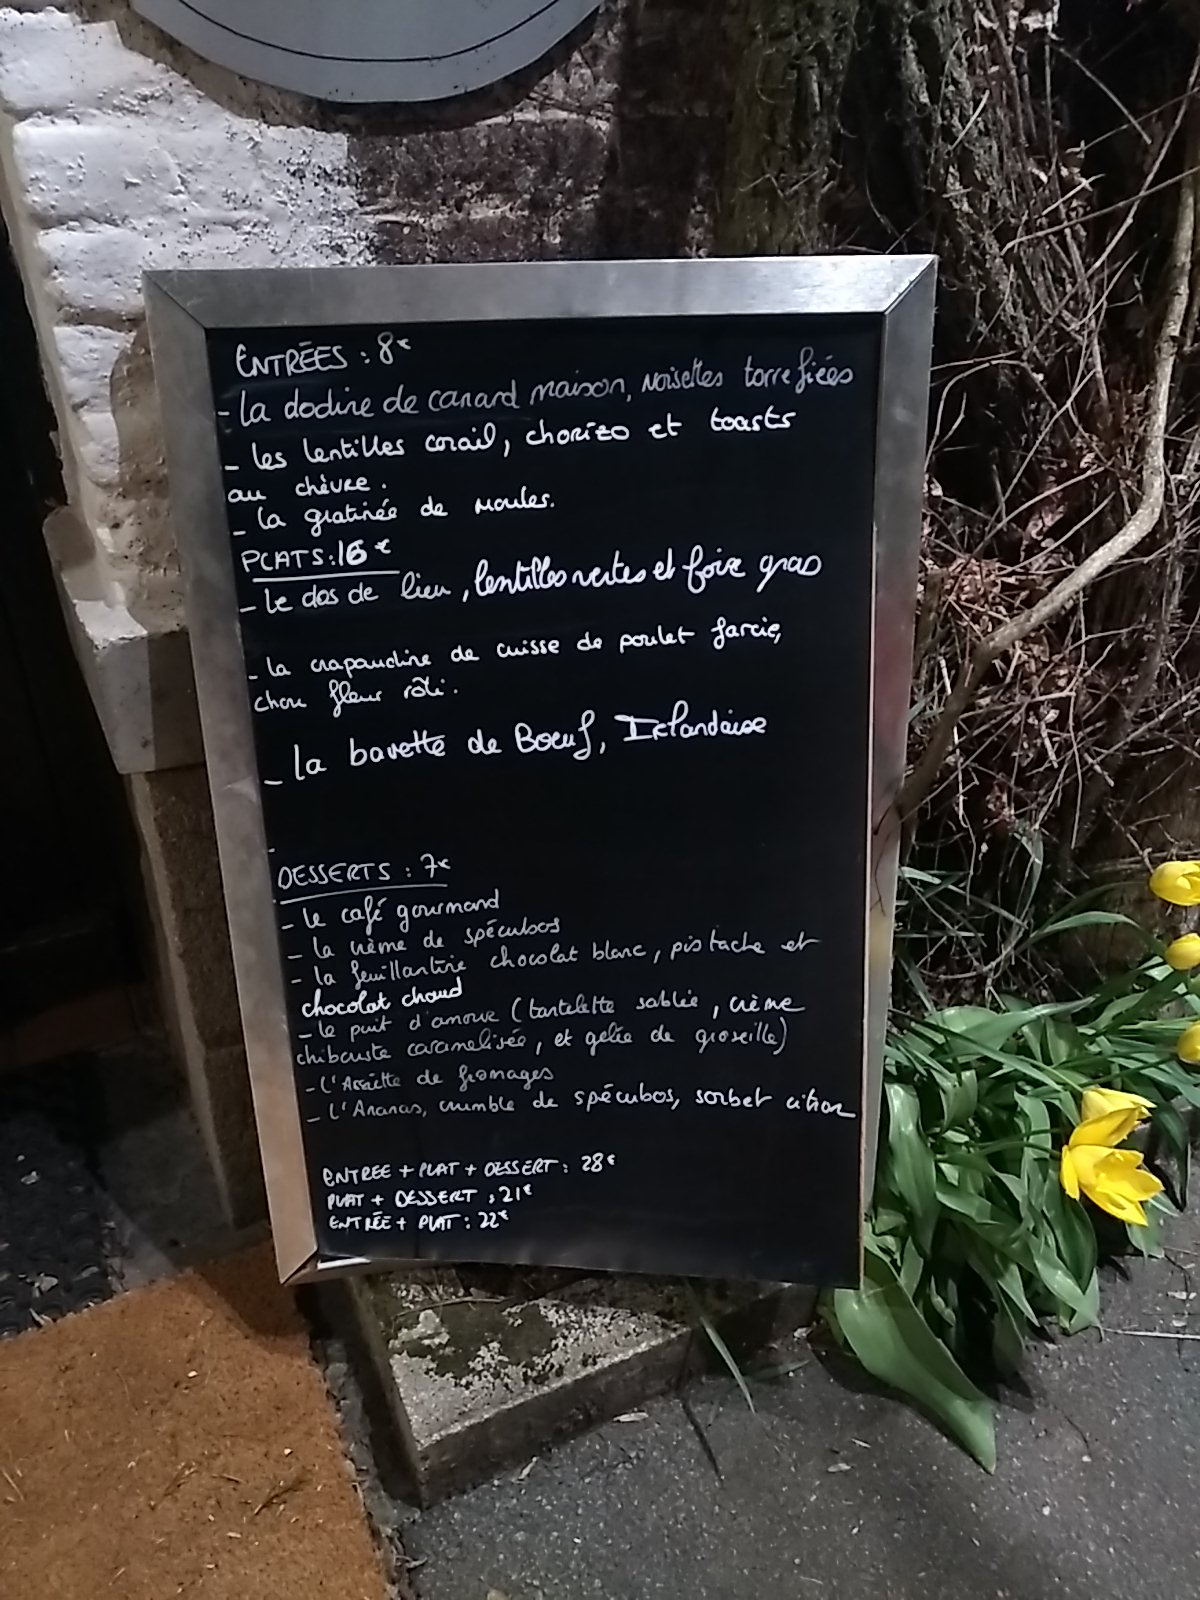 ENTRÉES : 8€
- la dodine de canard maison, noisettes torrefiées
- les lentilles corail, chorizo et toasts
au chèvre.
- la gratinée de moules.
PLATS : 16 €
- le dos de lieu, lentilles vertes et foie gras
- la crapaudine de cuisse de poulet farcie,
chou fleur rôti.
- la bavette de Boeuf, Irlandaise
DESSERTS : 7€
- le café gourmand
- la crème de spéculoos
- la feuillantine chocolat blanc, pistache et
chocolat chaud
- le puit d'amour (tartelette sablée, crème
chibouste caramelisée, et gelée de groseille)
- l'Assiette de fromages
- l'Ananas, crumble de spéculoos, sorbet citron
ENTREE + PLAT + DESSERT : 28€
PLAT + DESSERT : 21€
ENTRÉE + PLAT : 22€